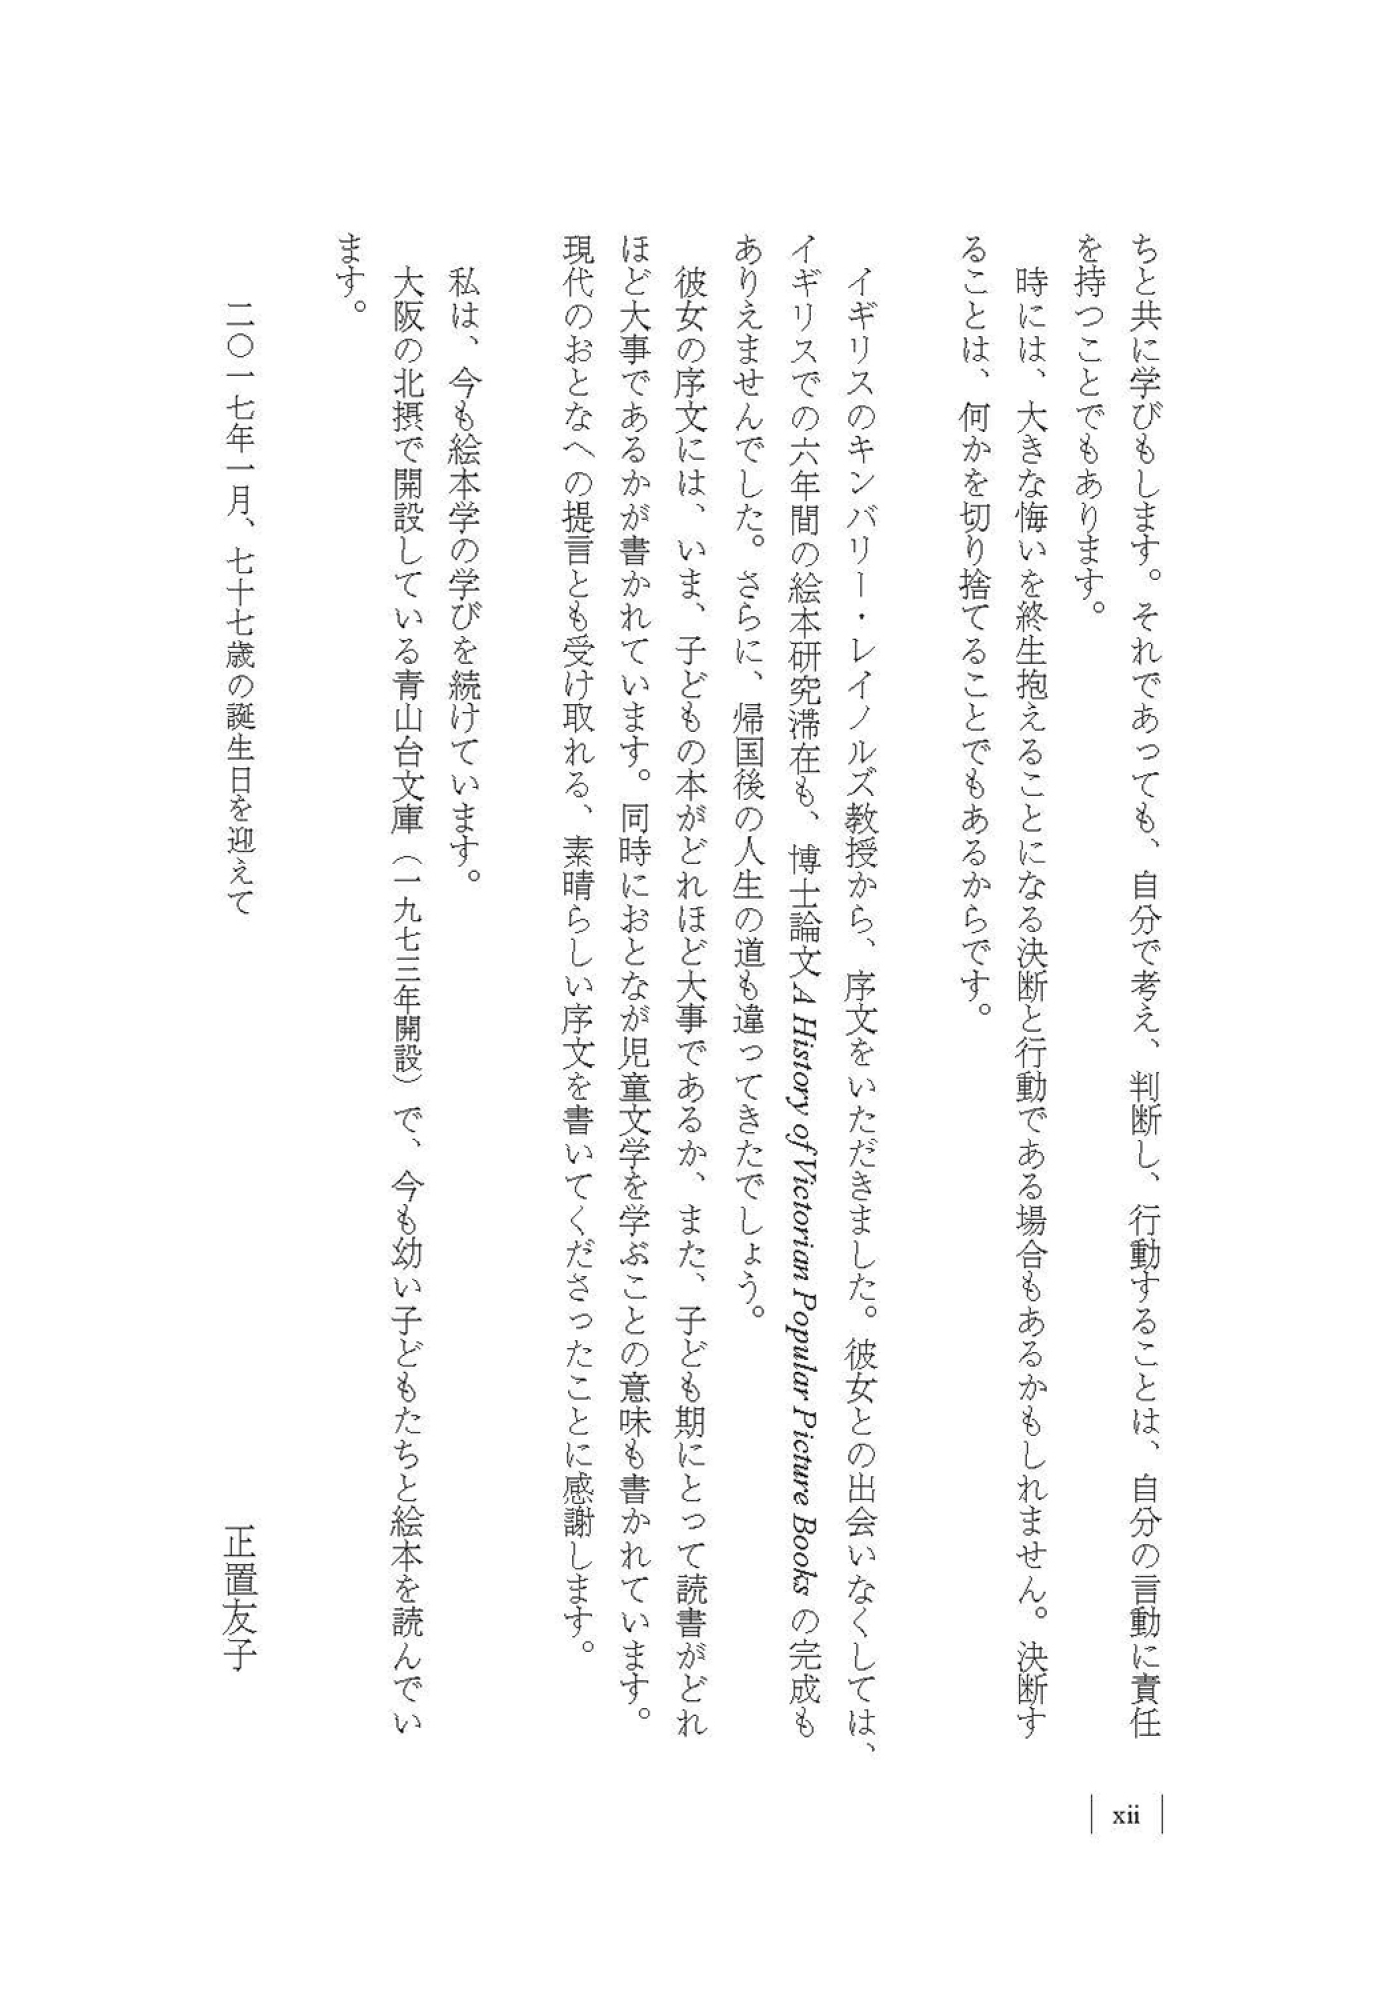 ちと共に学びもします。それであっても、自分で考え、判断し、行動することは、自分の言動に責任
を持つことでもあります。
時には、大きな悔いを終生抱えることになる決断と行動である場合もあるかもしれません。決断す
ることは、何かを切り捨てることでもあるからです。
イギリスのキンバリー・レイノルズ教授から、序文をいただきました。彼女との出会いなくしては、
イギリスでの六年間の絵本研究滞在も、博士論文 A History of Victorian Popular Picture Books の完成も
ありえませんでした。さらに、帰国後の人生の道も違ってきたでしょう。
彼女の序文には、いま、子どもの本がどれほど大事であるか、また、子ども期にとって読書がどれ
ほど大事であるかが書かれています。同時におとなが児童文学を学ぶことの意味も書かれています。
現代のおとなへの提言とも受け取れる、素晴らしい序文を書いてくださったことに感謝します。
私は、今も絵本学の学びを続けています。
大阪の北摂で開設している青山台文庫（一九七三年開設）で、今も幼い子どもたちと絵本を読んでい
ます。
二〇一七年一月、七十七歳の誕生日を迎えて
正置友子
xii